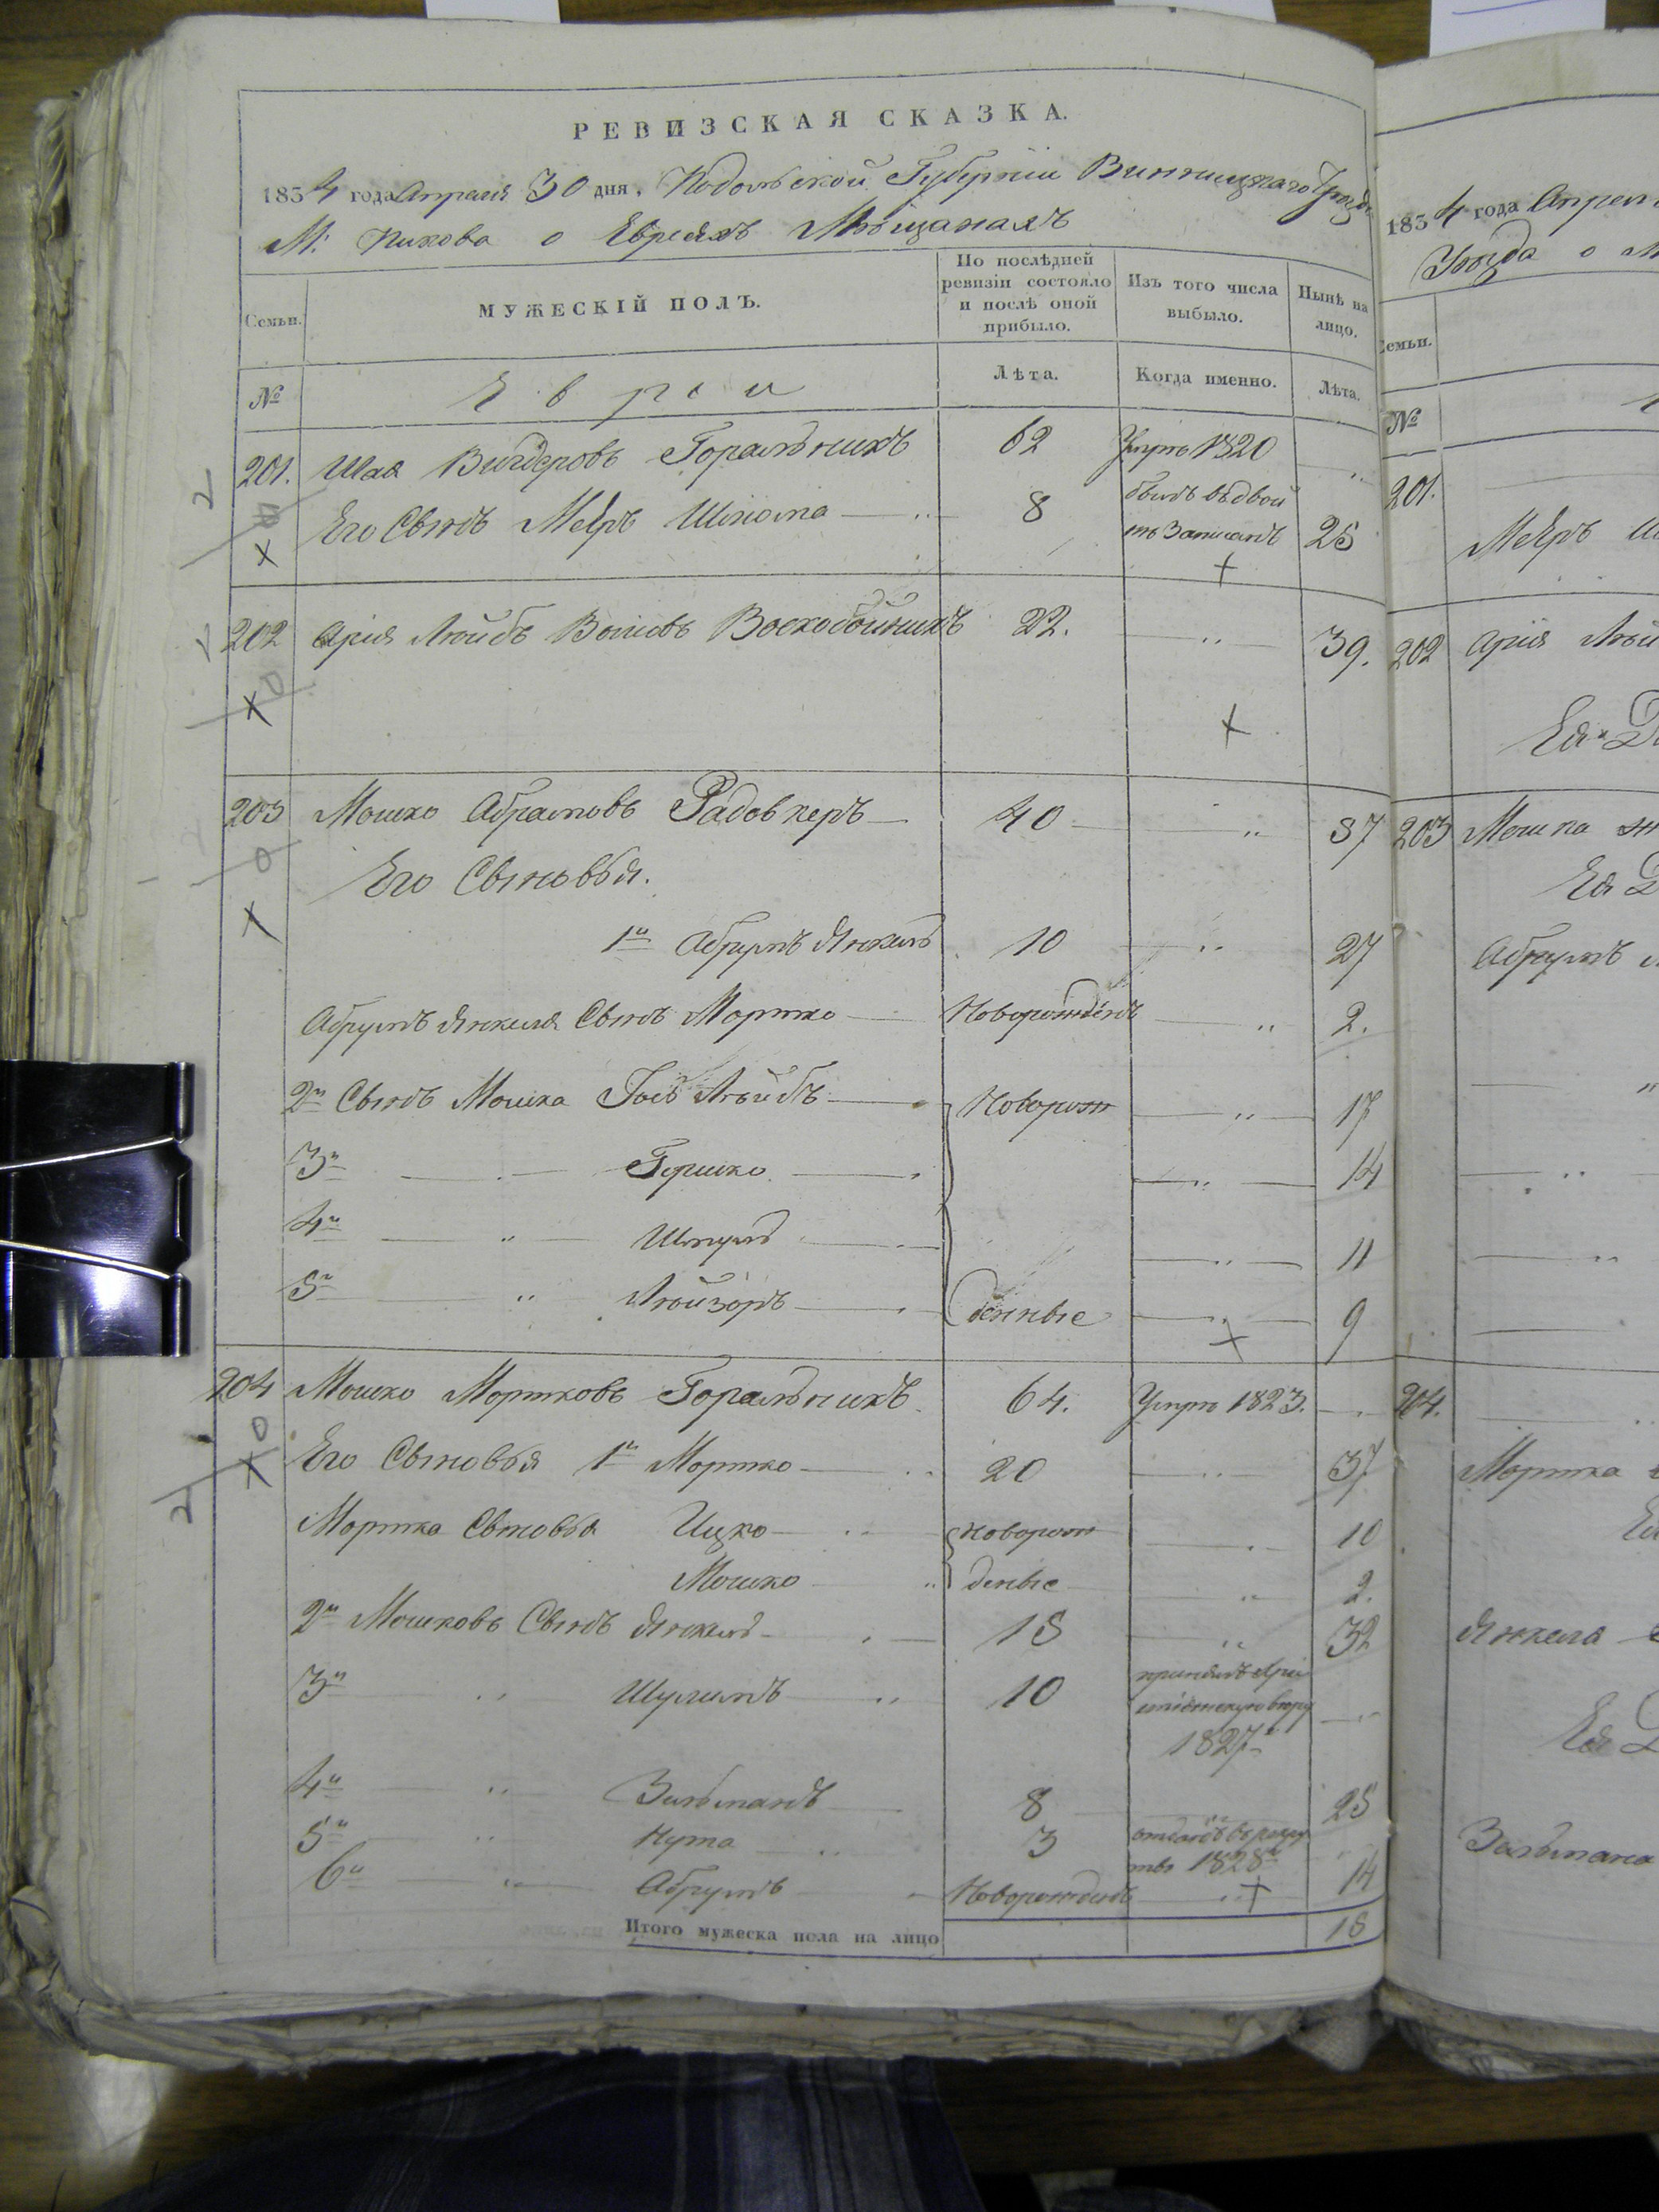 РЕВИЗСКАЯ СКАЗКА.
1834 года Апреля 30 дня, Подольской Губернии Винницкаго Уезда
М: Пикова о Евреяхъ Мѣщанахъ
Семьи.
МУЖЕСКІЙ ПОЛЪ.
По послѣдней ревизіи состояло и послѣ оной прибыло.
Изъ того числа выбыло.
Нынѣ на лицо.
№
Евреи
Лѣта.
Когда именно.
Лѣта.
201. Шая Вигдоровъ Горальникъ 62 Умрѣ 1820
Его Сынъ Меяръ Шліома 8 былъ въ двой
нѣ Записанъ 25
202 Арія Люйбъ Волковъ Воскобойникъ 22. 39.
203 Мошко Абрамовъ Радовкеръ 40 57
Его Сыновья.
1й Абрумъ Янкель 10 27
Абрумъ Янкеля Сынъ Мортко Новорожденъ 2.
2й Сынъ Мошка Гось Люйбъ Новорож 17
3й Гершко 14
4й Шмуль 11
5й Люйзоръ денные 9
204 Мошко Мортковъ Горальникъ 64. Умрѣ 1823.
Его Сыновья 1й Мортко 20 37
Мортка Сыновья Ицко новорож 10
Мошко денные 2.
2й Мошковъ Сынъ Янкель 15 32
3й Шулимъ 10 принялъ Хри
стіянскую вѣру
1827
4й Зельманъ 8 25
5й Нута 3 отданъ въ рекру
ты 1828
6й Абрумъ Новорожденъ 14
Итого мужеска пола на лицо 15
1834 года Апрел
Уезда о М
Семьи.
№
201.
Меяръ
202 Арія Люй
Ея
203 Мошка
Ея
Абрумъ
204.
Мортка
Янкеля
Ея
Зельмана